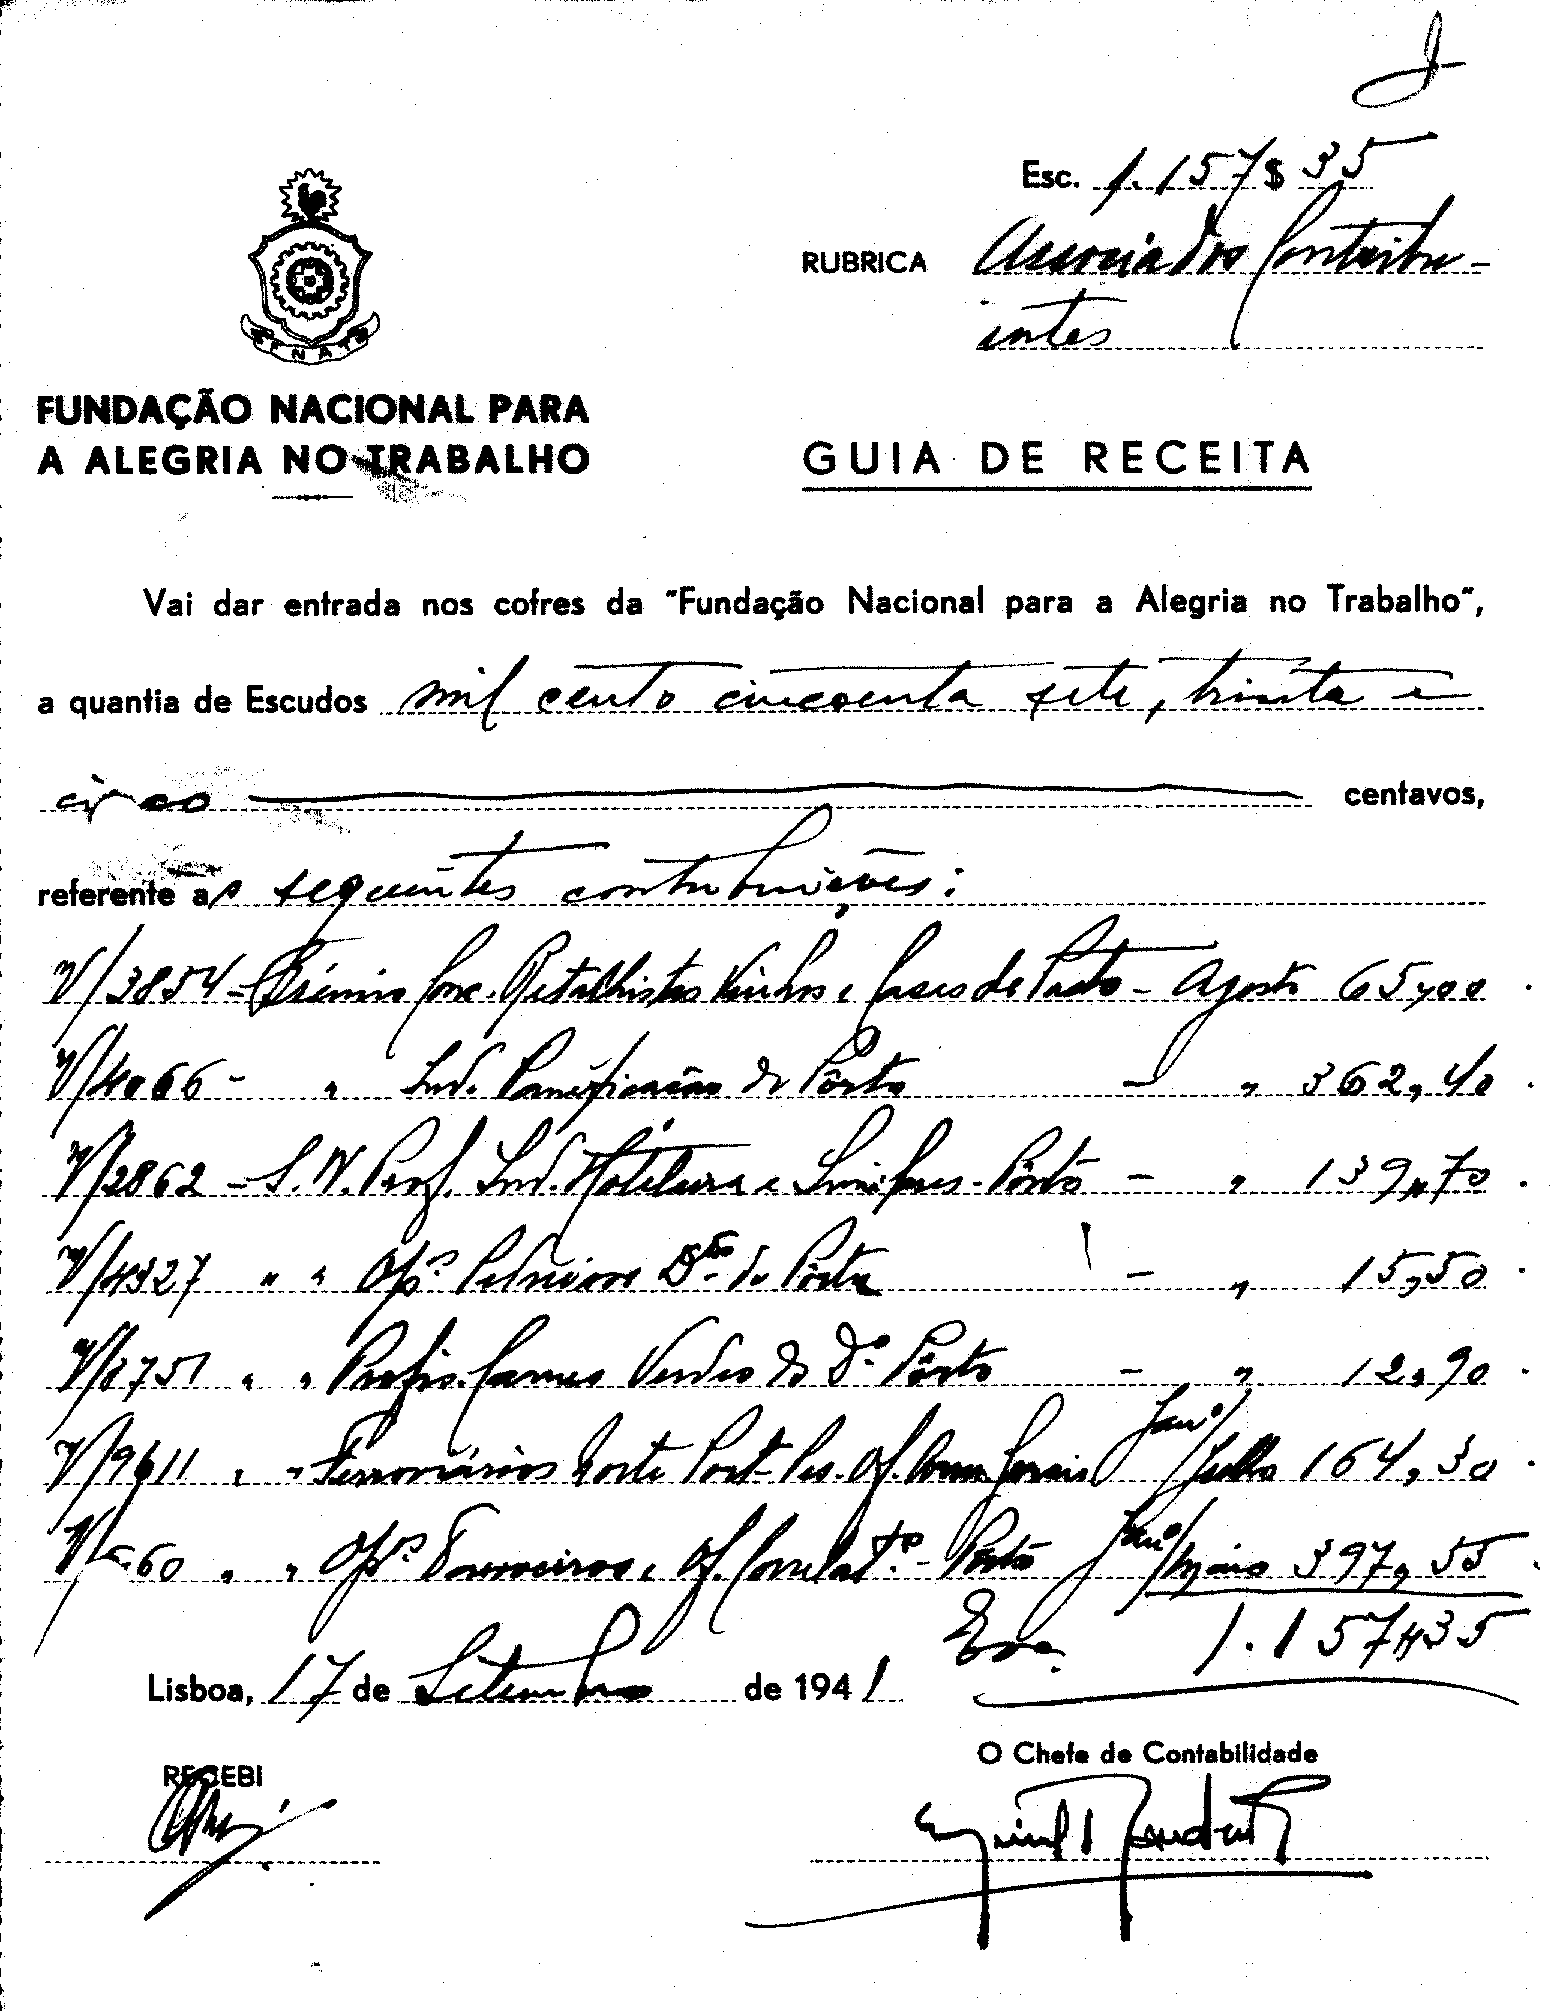 Esc. 1.157$35
RUBRICA Associados Contribu-
intes
FNAT
FUNDAÇÃO NACIONAL PARA
A ALEGRIA NO TRABALHO
GUIA DE RECEITA
Vai dar entrada nos cofres da "Fundação Nacional para a Alegria no Trabalho",
a quantia de Escudos mil cento cincoenta sete, trinta e
cinco centavos,
referente as seguintes contribuições:
V/3854 - Grémio Conc. Retalhistas Vinhos e Casas de Pasto - Agosto 65,00
V/4066 - " Ind. Panificação do Pôrto - " 362,40
V/2862 - S. N. Prof. Ind. Hoteleira e Similares - Pôrto - " 139,70
V/4327 " " Opº. Pedreiros Dto. do Pôrto - " 15,50
V/3751 " " Profis. Carnes Verdes do Dº. Pôrto - " 12,90
V/9611 " " Ferroviários Norte Port. Pes. Of. Arm. Gerais Janº/Julho 164,30
" " Opº. e Of. Correlatº. - Pôrto Janº/Maio 397,55
Esc. 1.157$35
Lisboa, 17 de Setembro de 1941
O Chefe de Contabilidade
RECEBI